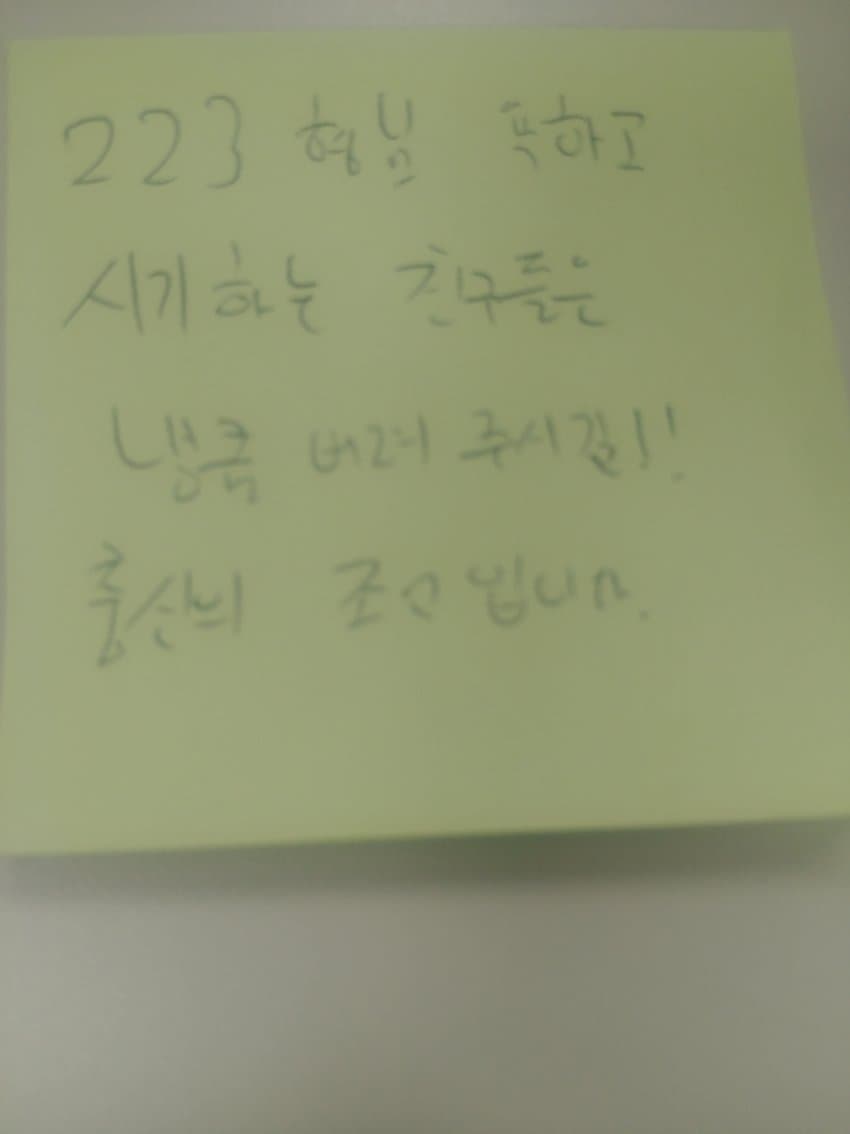 223 형님 욕하고
시기하는 친구들은
냉큼 버려 주시길!!
조언입니다.